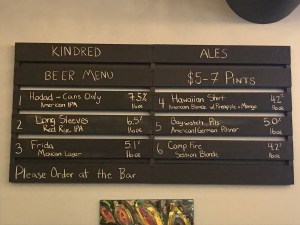 KINDRED ALES
BEER MENU $5-7 PINTS
1 Hodad - Cans Only 7.5%
American IPA 16oz
2 Long Sleeves 6.5%
Red Rye IPA 16oz
3 Frida 5.1%
Mexican Lager 16oz
4 Hawaiian Shirt 4.2%
American Blonde w/ Pineapple + Mango 16oz
5 Baywatch Pils 5.0%
American/German Pilsner 16oz
6 Camp Fire 4.2%
Session Blonde 16oz
Please Order at the Bar